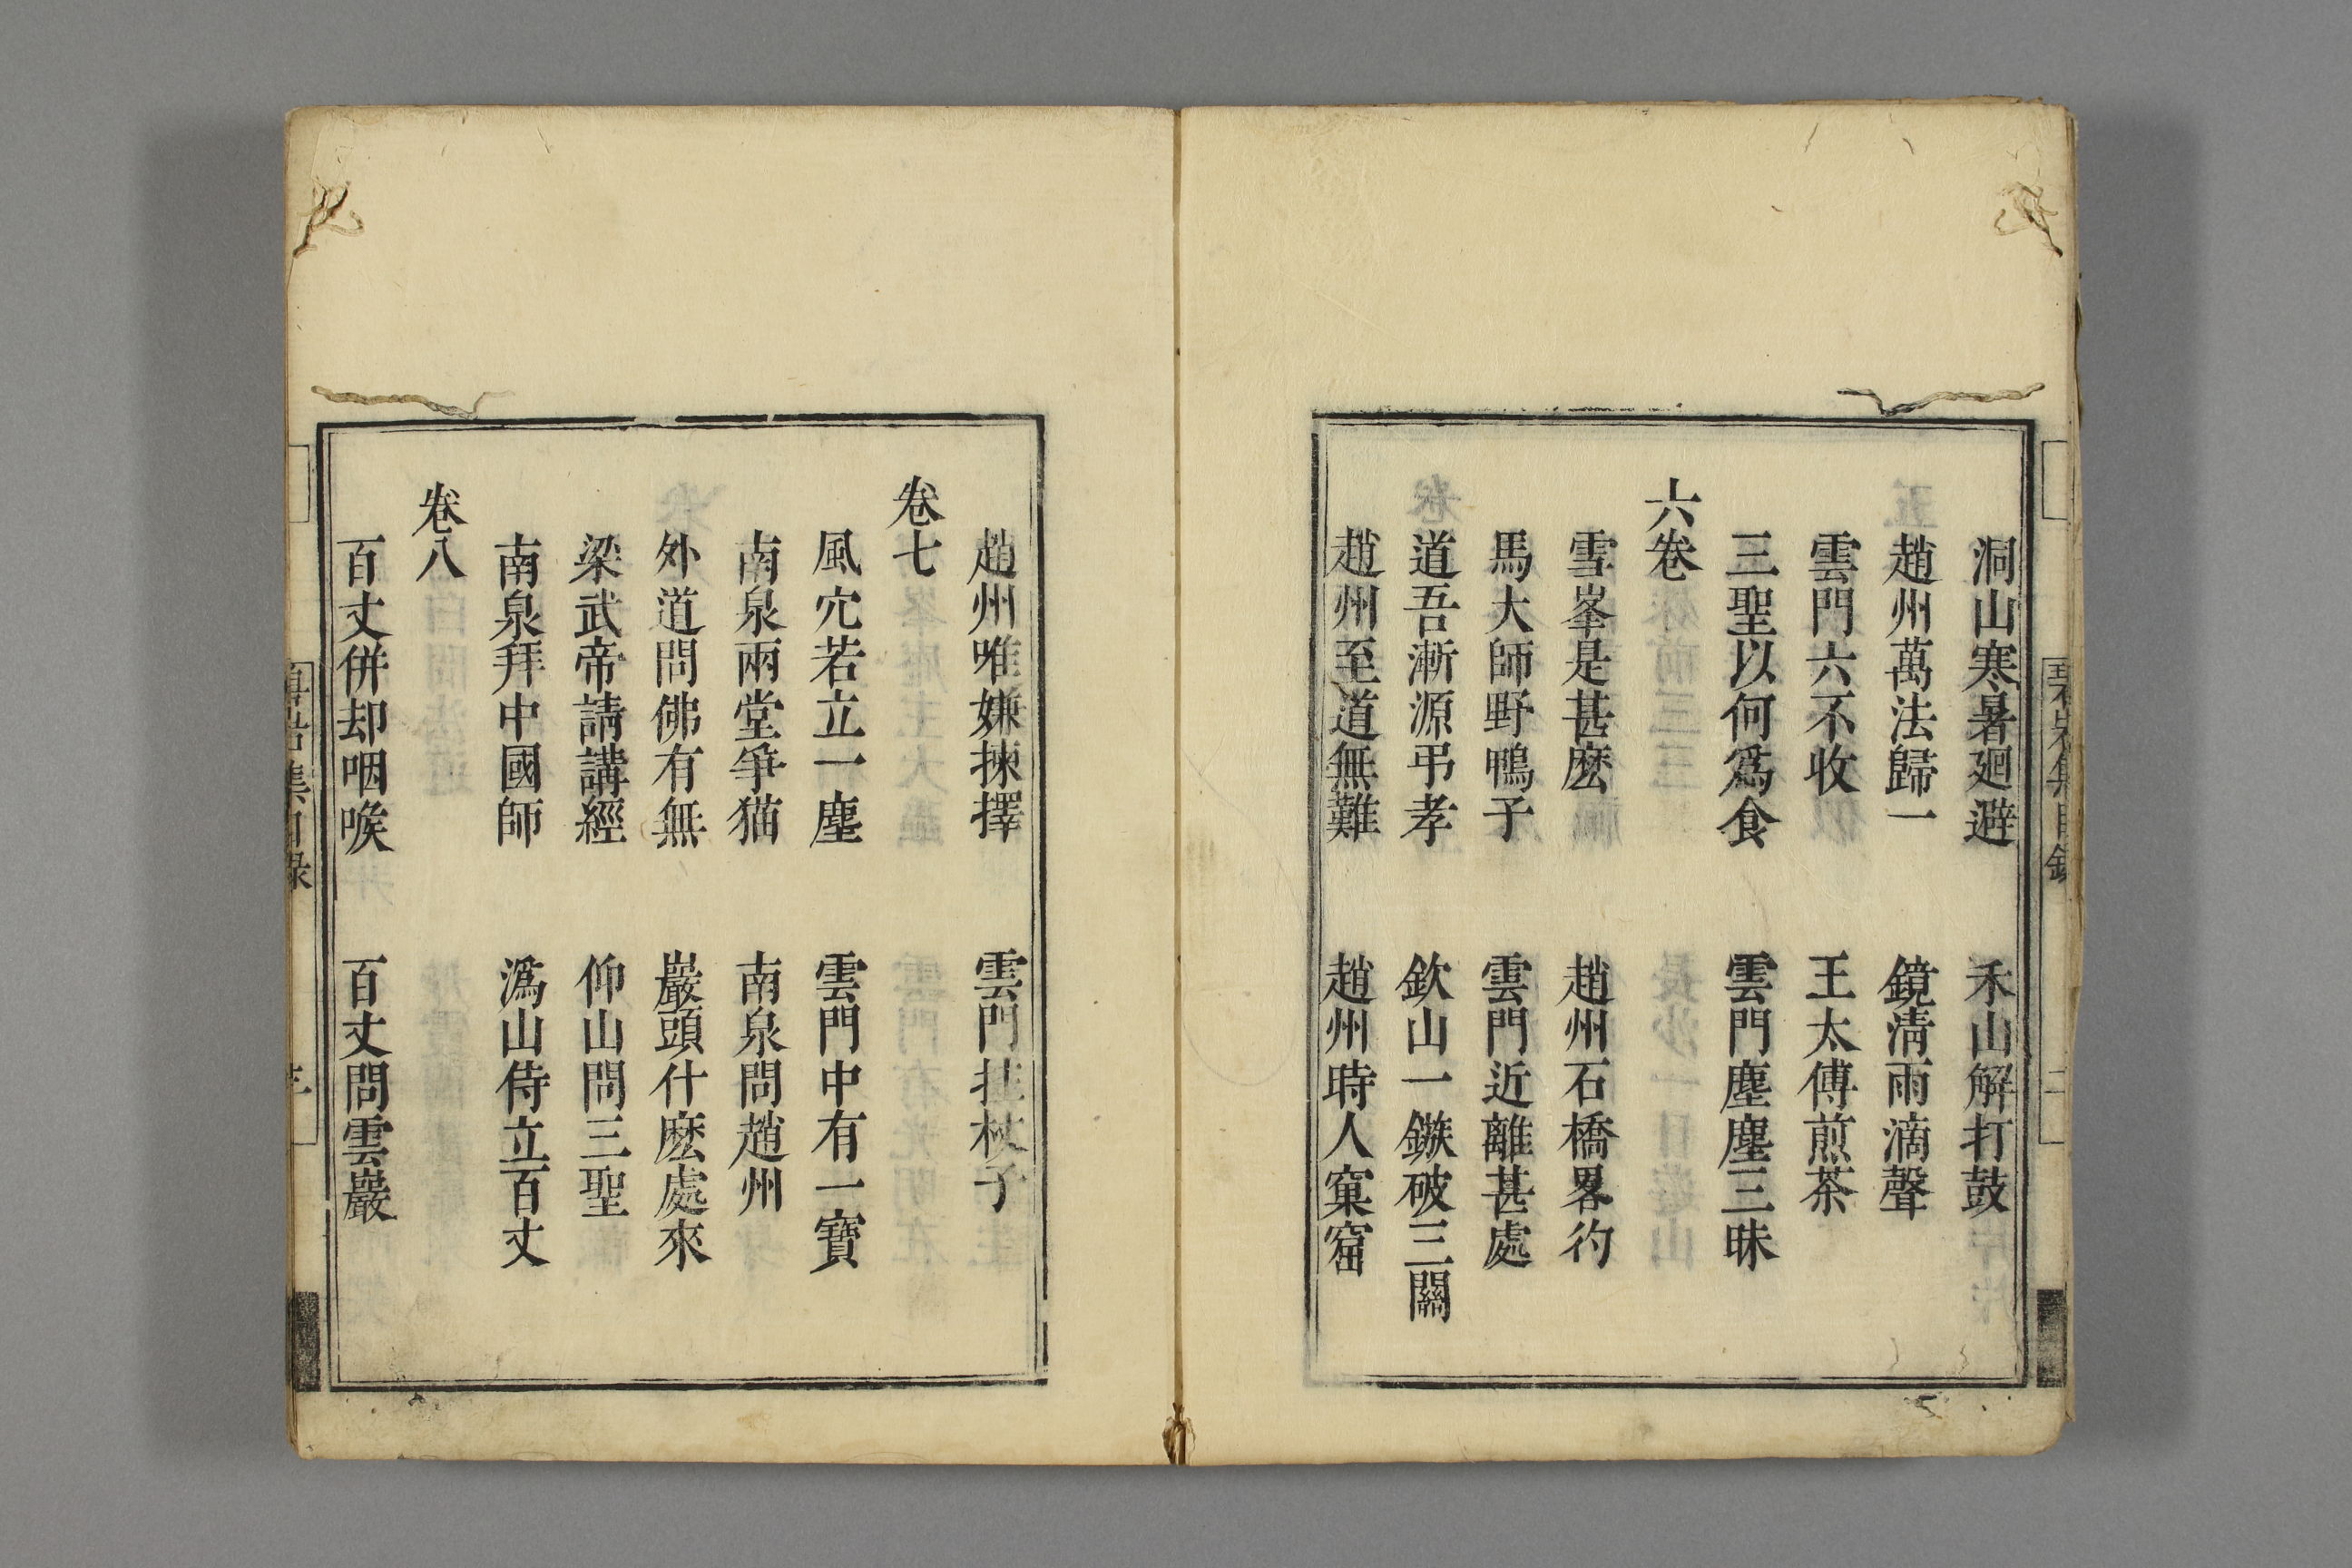 洞山寒暑廻避　禾山解打鼓
趙州萬法歸一　鏡清雨滴聲
雲門六不收　王太傅煎茶
三聖以何爲食　雲門塵塵三昧
六卷
雪峯是甚麽　趙州石橋畧彴
馬大師野鴨子　雲門近離甚處
道吾漸源弔孝　欽山一鏃破三關
趙州至道無難　趙州時人窠窟
趙州唯嫌揀擇　雲門拄杖子
卷七
風穴若立一塵　雲門中有一寶
南泉兩堂爭猫　南泉問趙州
外道問佛有無　巖頭什麽處來
梁武帝請講經　仰山問三聖
南泉拜中國師　潙山侍立百丈
卷八
百丈併却咽喉　百丈問雲巖